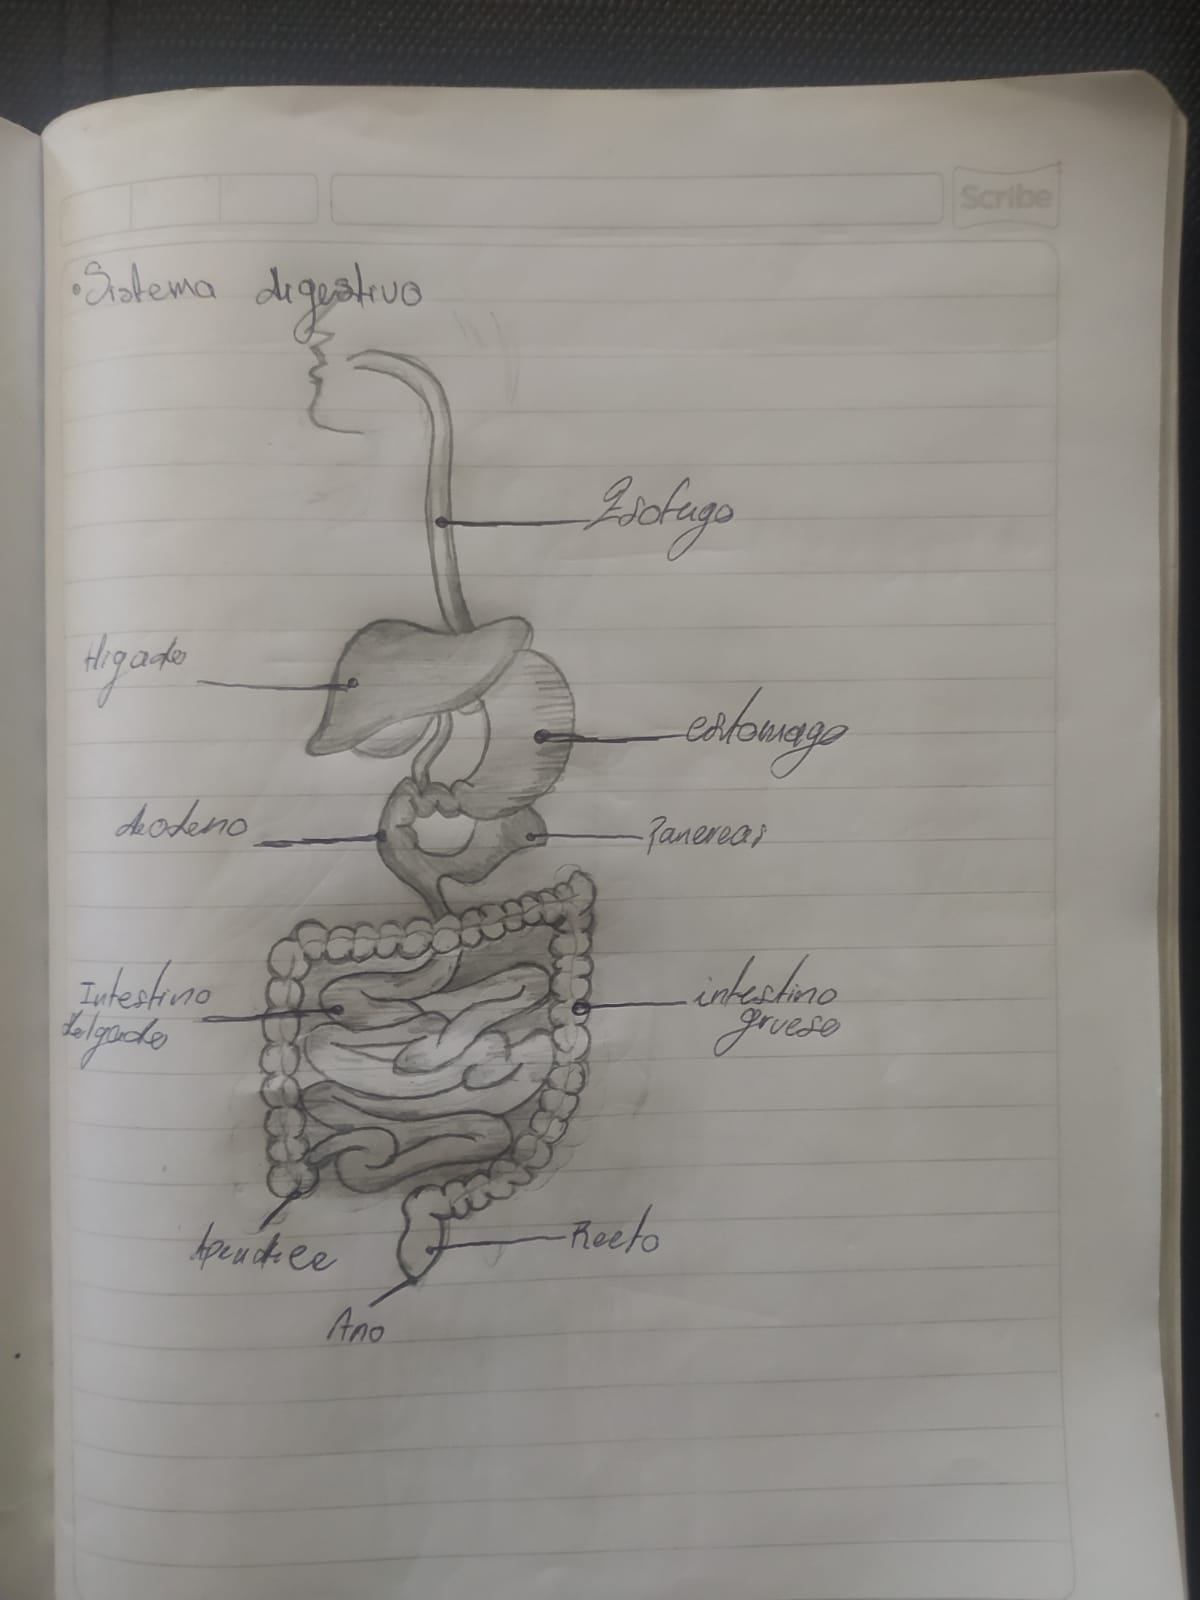 Scribe
•Sistema digestivo
Esofago
Higado
estomago
deodeno
Pancreas
Intestino
delgado
intestino
grueso
Apendice
Recto
Ano